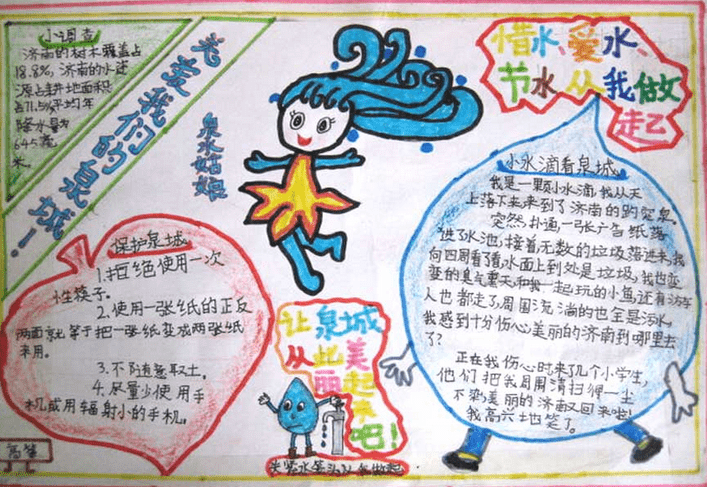 小调查
济南的树木覆盖占
18.8%,济南的水资
源占耕地面积
占71.5%平均年
降水量为
645毫
米。
关爱我们的泉城！
泉水姑娘
惜水、爱水、
节水从我做
起
保护泉城
1.拒绝使用一次
性筷子。
2.使用一张纸的正反
两面就等于把一张纸变成两张纸
来用。
3.不随意取土。
4.尽量少使用手
机或用辐射小的手机。
让泉城
从此美
丽起
来吧！
关紧水笼头从我做起
小水滴看泉城
我是一颗小水滴,我从天
上落下来来到了济南的趵突泉。
突然,扑通,一张广告纸落
进了水池,接着无数的垃圾落进来,我
向四周看了看水面上到处是垃圾,我也变
变的臭气熏天,和我一起玩的小鱼还有游客
人也都走了,周围流淌的也全是污水,
我感到十分伤心美丽的济南到哪里去
了?
正在我伤心时来了几个小学生,
他们把我周围清扫得一尘
不染,美丽的济南又回来啦!
我高兴地笑了。